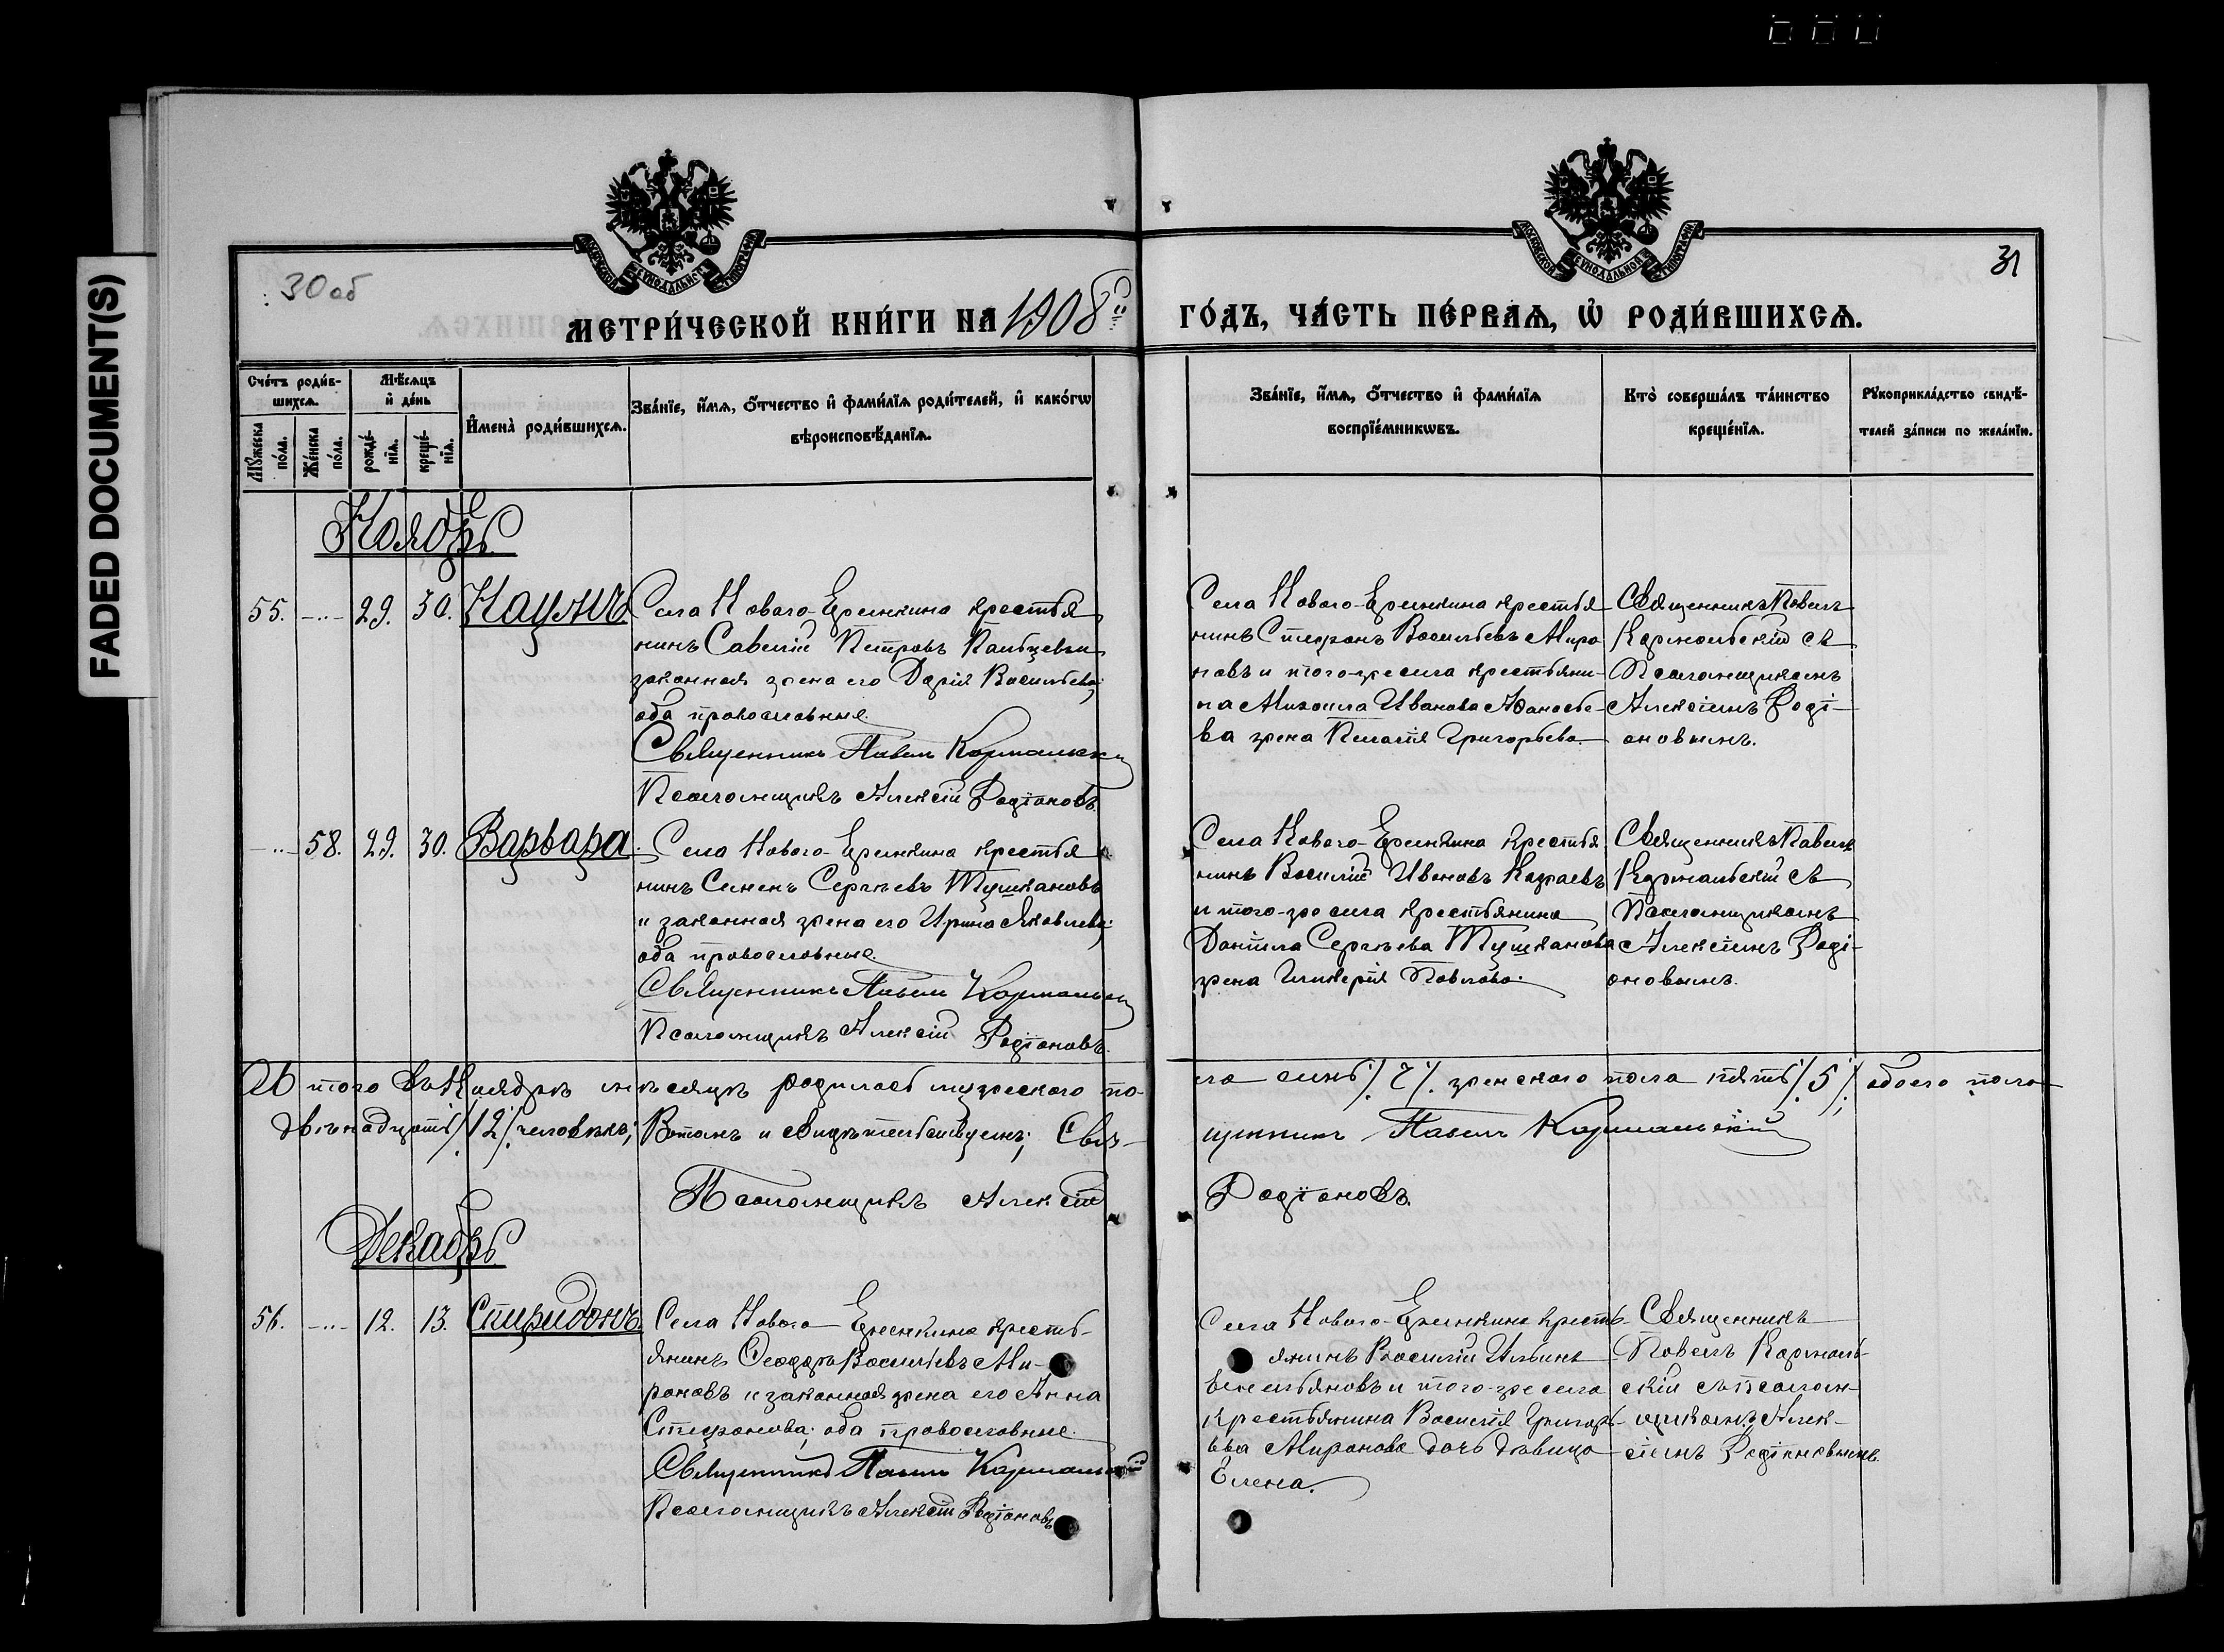 FADED DOCUMENT(S)
30 об
31
МЕТРИ́ЧЕСКОЙ КНИ́ГИ НА 1908й ГО́ДЪ, ЧА́СТЬ ПЕ́РВАѦ, Ѽ РОДИ́ВШИХСѦ.
Сче́тъ роди́в-
шихсѧ.
Мꙋ́жеска
по́ла.
Же́нска
по́ла.
Мѣ́сѧцъ
и҆ де́нь
рожде́-
нїѧ.
креще́-
нїѧ.
И҆мена̀ роди́вшихсѧ.
Зва́нїе, и҆́мѧ, ѻ҆́тчество и҆ фами́лїѧ роди́телей, и҆ како́гѡ
вѣроисповѣ́данїѧ.
Зва́нїе, и҆́мѧ, ѻ҆́тчество и҆ фами́лїѧ
воспрїе́мникѡвъ.
Кто̀ соверша́лъ та́инство
креще́нїѧ.
Рꙋкоприкла́дство свидѣ́-
телей за́писи по жела́нїю.
Ноябрь.
55. -..- 29. 30. Наумъ.
Села Новаго-Еремкина крестья
нинъ Савелій Петровъ
законная жена его Дарія Васильева;
оба православные.
Священникъ Павелъ Кармальскій
Псаломщикъ Алексій Родіоновъ.
Села Новаго-Еремкина крестья
нинъ Стефанъ Васильевъ Миро
новъ и того-же села крестьяни-
на Михаила Иванова Афанасье-
ва жена Пелагія Григорьева.
Священникъ Павелъ
Кармальскій съ
Псаломщикомъ
Алексіемъ Родi-
оновымъ.
-..- 58. 29. 30. Варвара.
Села Новаго-Еремкина крестья
нинъ Семенъ Сергѣевъ Тушкановъ
и законная жена его Ирина Яковлева;
оба православные.
Священникъ Павелъ Кармальскій
Псаломщикъ Алексій Родіоновъ.
Села Новаго-Еремкина крестья
нинъ Василій Ивановъ
и того-же села крестьянина
Даніила Сергѣева Тушканова
жена Гликерія Павлова.
Священникъ Павелъ
Кармальскій съ
Псаломщикомъ
Алексіемъ Родi-
оновымъ.
того въ Ноябрѣ мѣсяцѣ родилось мужескаго по-
ла семь /7/. женскаго пола пять /5/. обоего пола
двѣнадцать /12/. человѣкъ; въ томъ и свидѣтельствуемъ; Свя-
щенникъ Павелъ Кармальскій
Псаломщикъ Алексій
Родіоновъ.
Декабрь.
56. -..- 12. 13. Спиридонъ
Села Новаго Еремкина кресть-
янинъ Ѳеодоръ Васильевъ Ми-
роновъ и законная жена его Анна
Стефанова; оба православные.
Священникъ Павелъ Кармальскій
Псаломщикъ Алексій Родіоновъ
Села Новаго-Еремкина кресть-
янинъ Василій Ильинъ
Емельяновъ и того-же села
крестьянина Василія Григорь-
ева Миронова дочь дѣвица
Елена.
Священникъ
Павелъ Кармаль-
скій съ псалом-
щикомъ Алек-
сіемъ Родіоновымъ.